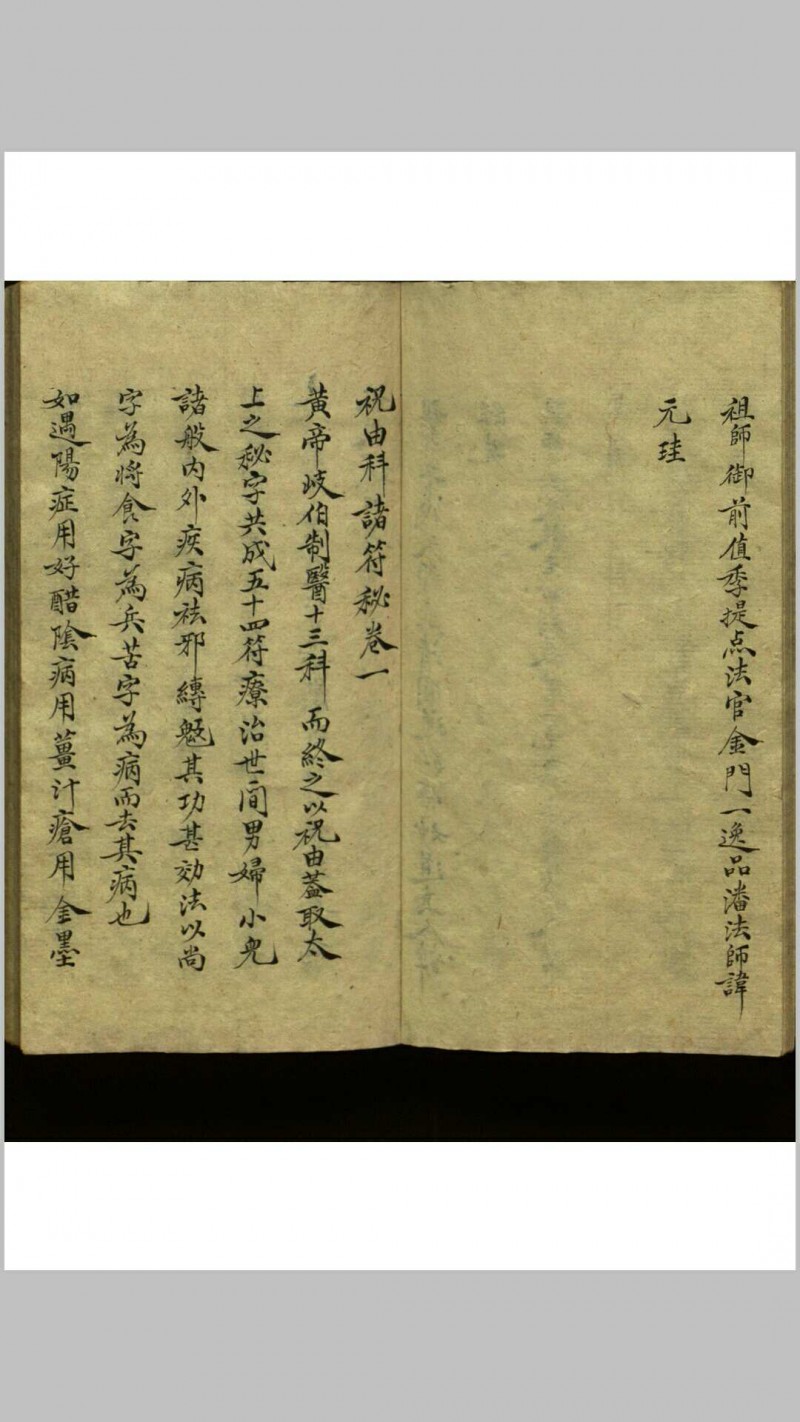 祖師御前值季提点法官金門一逸品潘法師諱
元珪
祝由科諸符秘卷一
黄帝岐伯制醫十三科而終之以祝由蓋取太
上之秘字共成五十四符療治世間男婦小兒
諸般内外疾病祛邪縛魃其功甚効法以尚
字為将食字為兵苦字為病而去其病也
如遇陽症用好醋陰病用薑汁瘡用金墨